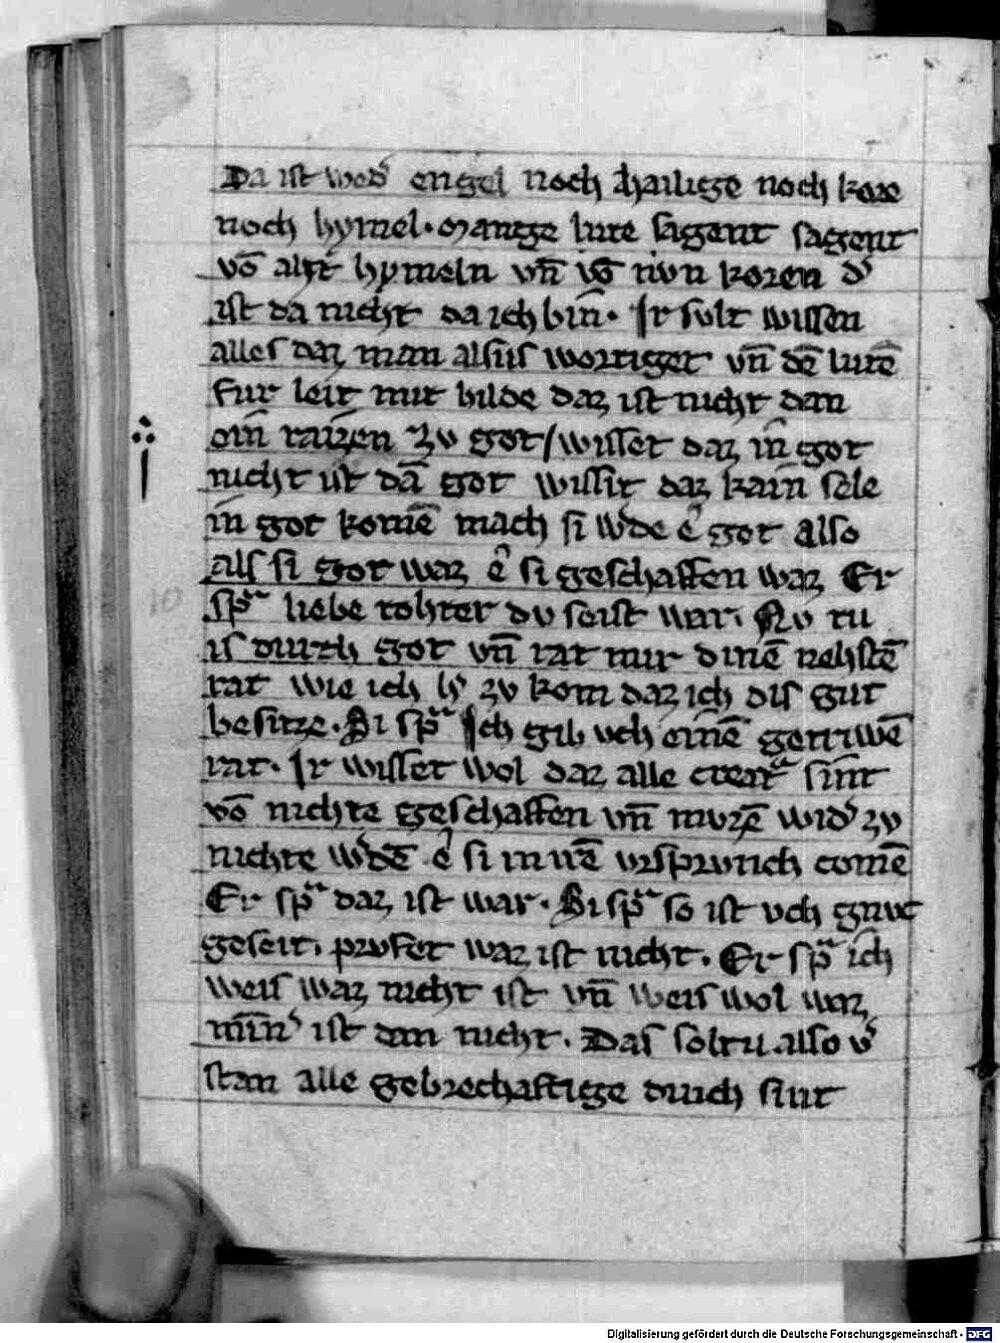 Da ist wed̕ engel noch hailige noch kore
noch hymel. Mange lute sagent sagent
vō aht hymeln vn̄ vō nvn koren d̕
ist da nicht da ich bin. Ir sult wissen
alles daz man alsus wortiget vn̄ dē lutē
fur leit mit bilde daz ist nicht dan
ein raizen zv got / wisset daz in got
nicht ist dā got wissit daz kain sele
in got komē mach si w̕de e got also
als si got waz e si geschaffen waz Er
spͣ liebe tohter dv seist war. Nv tu
is durch got vn̄ rat mir dinē nehstē
rat wie ich zv kom daz ich dis gut
besitze. Si spͣ Ich gib vch einē getriwē
rat. Ir wisset wol daz alle creatͣ sint
vō nichte geschaffen vn̄ mvzē wid̕ zv
nichte w̕dē e si in irē vrsprvnch comē
Er spͣ daz ist war. Si spͣ so ist vch gnvc
geseit. prvfet waz ist nicht. Er spͣ ich
weis waz nicht ist vn̄ weis wol waz
min̄̕ ist dan nicht. Das soltu also v̕
stan alle gebrechaftige sint
Digitalisierung gefördert durch die Deutsche Forschungsgemeinschaft - DFG